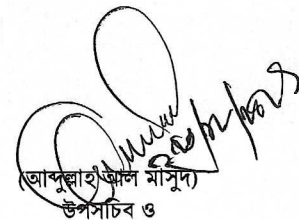 (আব্দুল্লাহ আল মাসুদ)
উপসচিব ও